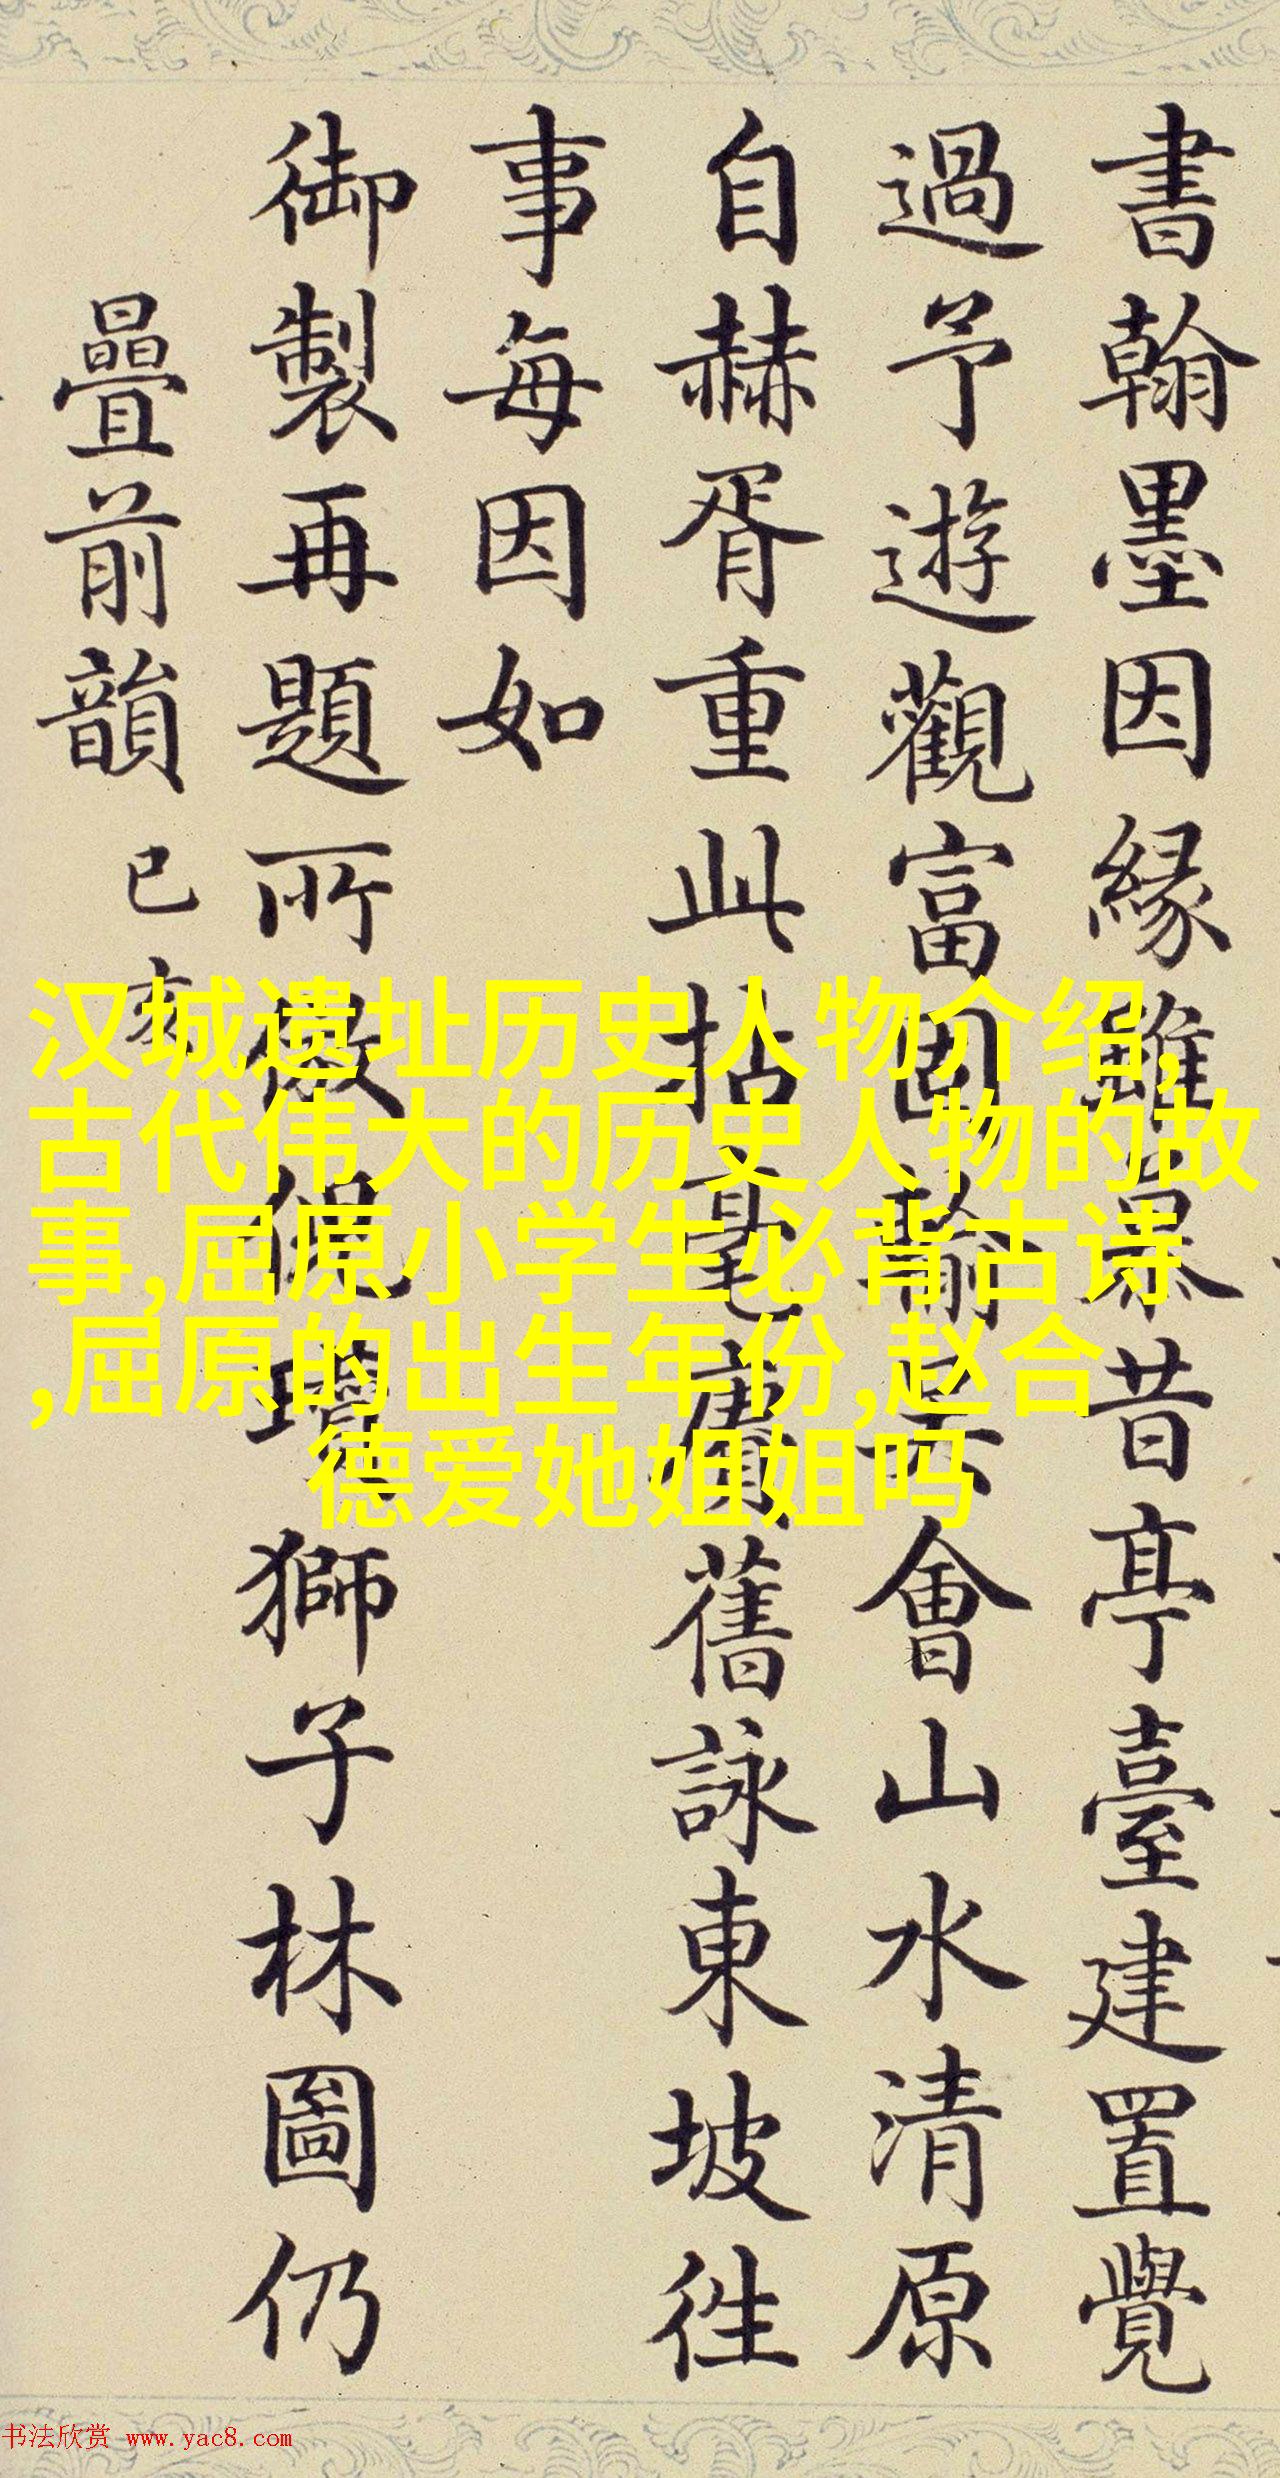 書翰墨因緣雖昔亭臺建置覺
過予遊觀富固會山水清原
自赫胥重此拈毫賡舊詠東坡徃
事每因如
御製再題所倣倪瓚獅子林圖仍
疊前韻 己亥
汉城遗址历史人物介绍,
古代伟大的历史人物的故
事,屈原小学生必背古诗
,屈原的出生年份,赵合
德爱她姐姐吗
书法欣赏 www.yac8.com